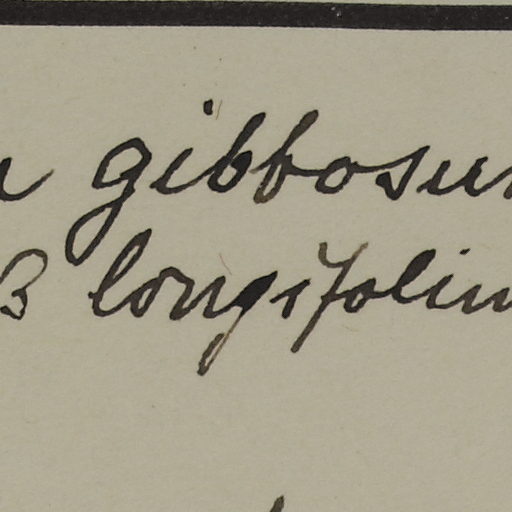 gibbosu
β longifolium